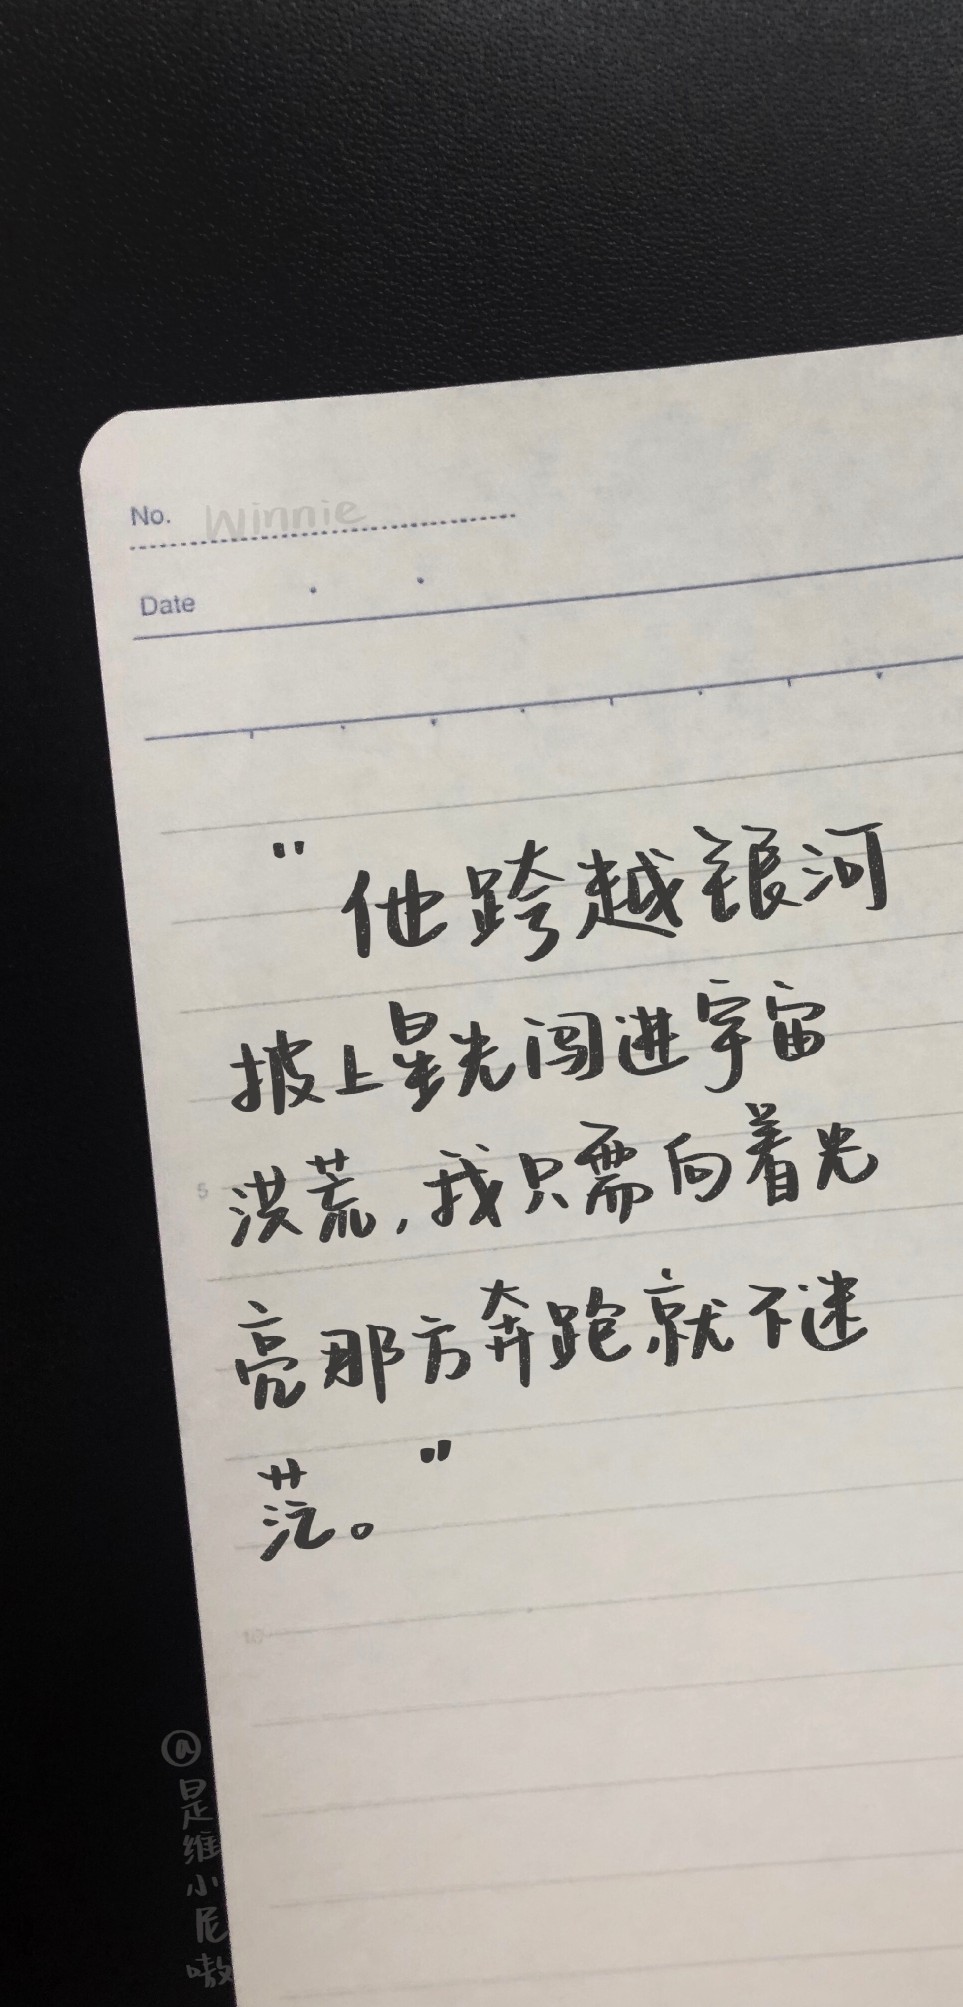 No. Winnie
Date
"他跨越银河
披上星光闯进宇宙
洪荒，我只需向着光
亮那方奔跑就不迷
茫。"
5
10
@是维小尼嗷